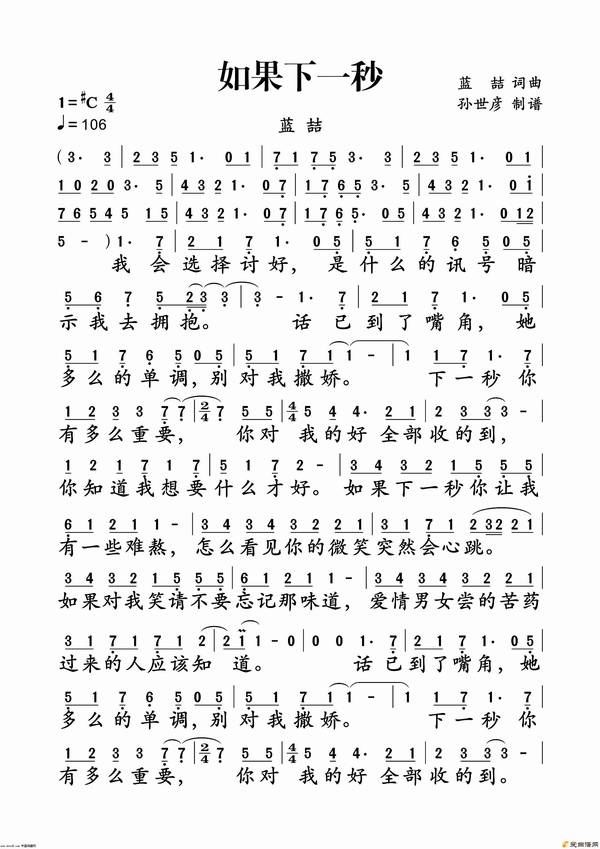 如果下一秒
1=#C 4/4
蓝 喆 词曲
孙世彦 制谱
♩=106
蓝 喆
(3· 3· | 2 3 5 1· 0 1 | 7 1 7 5 3· 3· | 5 4 3 2 1· 0 1 |
1 0 2 0 3· 3· | 4 3 2 1· 0 7 | 1 7 6 5 3· 3· | 4 3 2 1· 0 1 |
7 6 5 4 5 1 5 | 4 3 2 1· 0 7 | 1 7 6 5· 0 5 | 4 3 2 1· 0 1 2 |
5 - ) 1· 7 | 2 1 7 1· 0 5 | 5 1 7 6 5 0 5 |
我 会 选择讨好， 是什么的讯号 暗
5 6 7 5 2 3 3 | 3 - 1· 7 | 2 1 7 1· 0 7 |
示我去拥抱。 话已到了嘴角，她
5 1 7 6 5 0 5 | 5 1 7 1 1 | 1 - 1 | 1 7 1· 7 |
多么的单调，别对我撒娇。 下一秒你
1 2 3 3 7 7 | 2/4 7 5 5 | 4/4 5 4 4· 0 | 2 2 0 3 3 |
有多么重要， 你对 我的好 全部收的到，
1 2 1 7 1 7 | 5 1 7 2 - | 3 4 3 2 1 5 5 5 |
你知道我想要什么才好。如果下一秒你让我
6 1 2 1 1 - | 3 4 3 4 3 4 3 | 3 1 7 1 2 3 2 2 1 |
有一些难熬，怎么看见你的微笑突然会心跳。
3 4 3 2 1 5 5 5 | 6 1 2 1 2 3 | 3 4 3 4 3 4 3 |
如果对我笑请不要忘记那味道，爱情男女尝的苦药
3 3 1 7 1 7 1 2 | 2 1 1 - 0 | 0 0 1· 7 | 2 1 7 1· 0 7 |
过来的人应该知 道。 话已到了嘴角，她
5 1 7 6 5 0 5 | 5 1 7 1 1 | 1 - 1 | 1 7 1· 7 |
多么的单调，别对我撒娇。 下一秒你
1 2 3 3 7 7 | 2/4 7 5 5 | 4/4 5 4 4· 0 | 2 2 0 3 3 |
有多么重要， 你对 我的好 全部收的到。
爱曲谱网